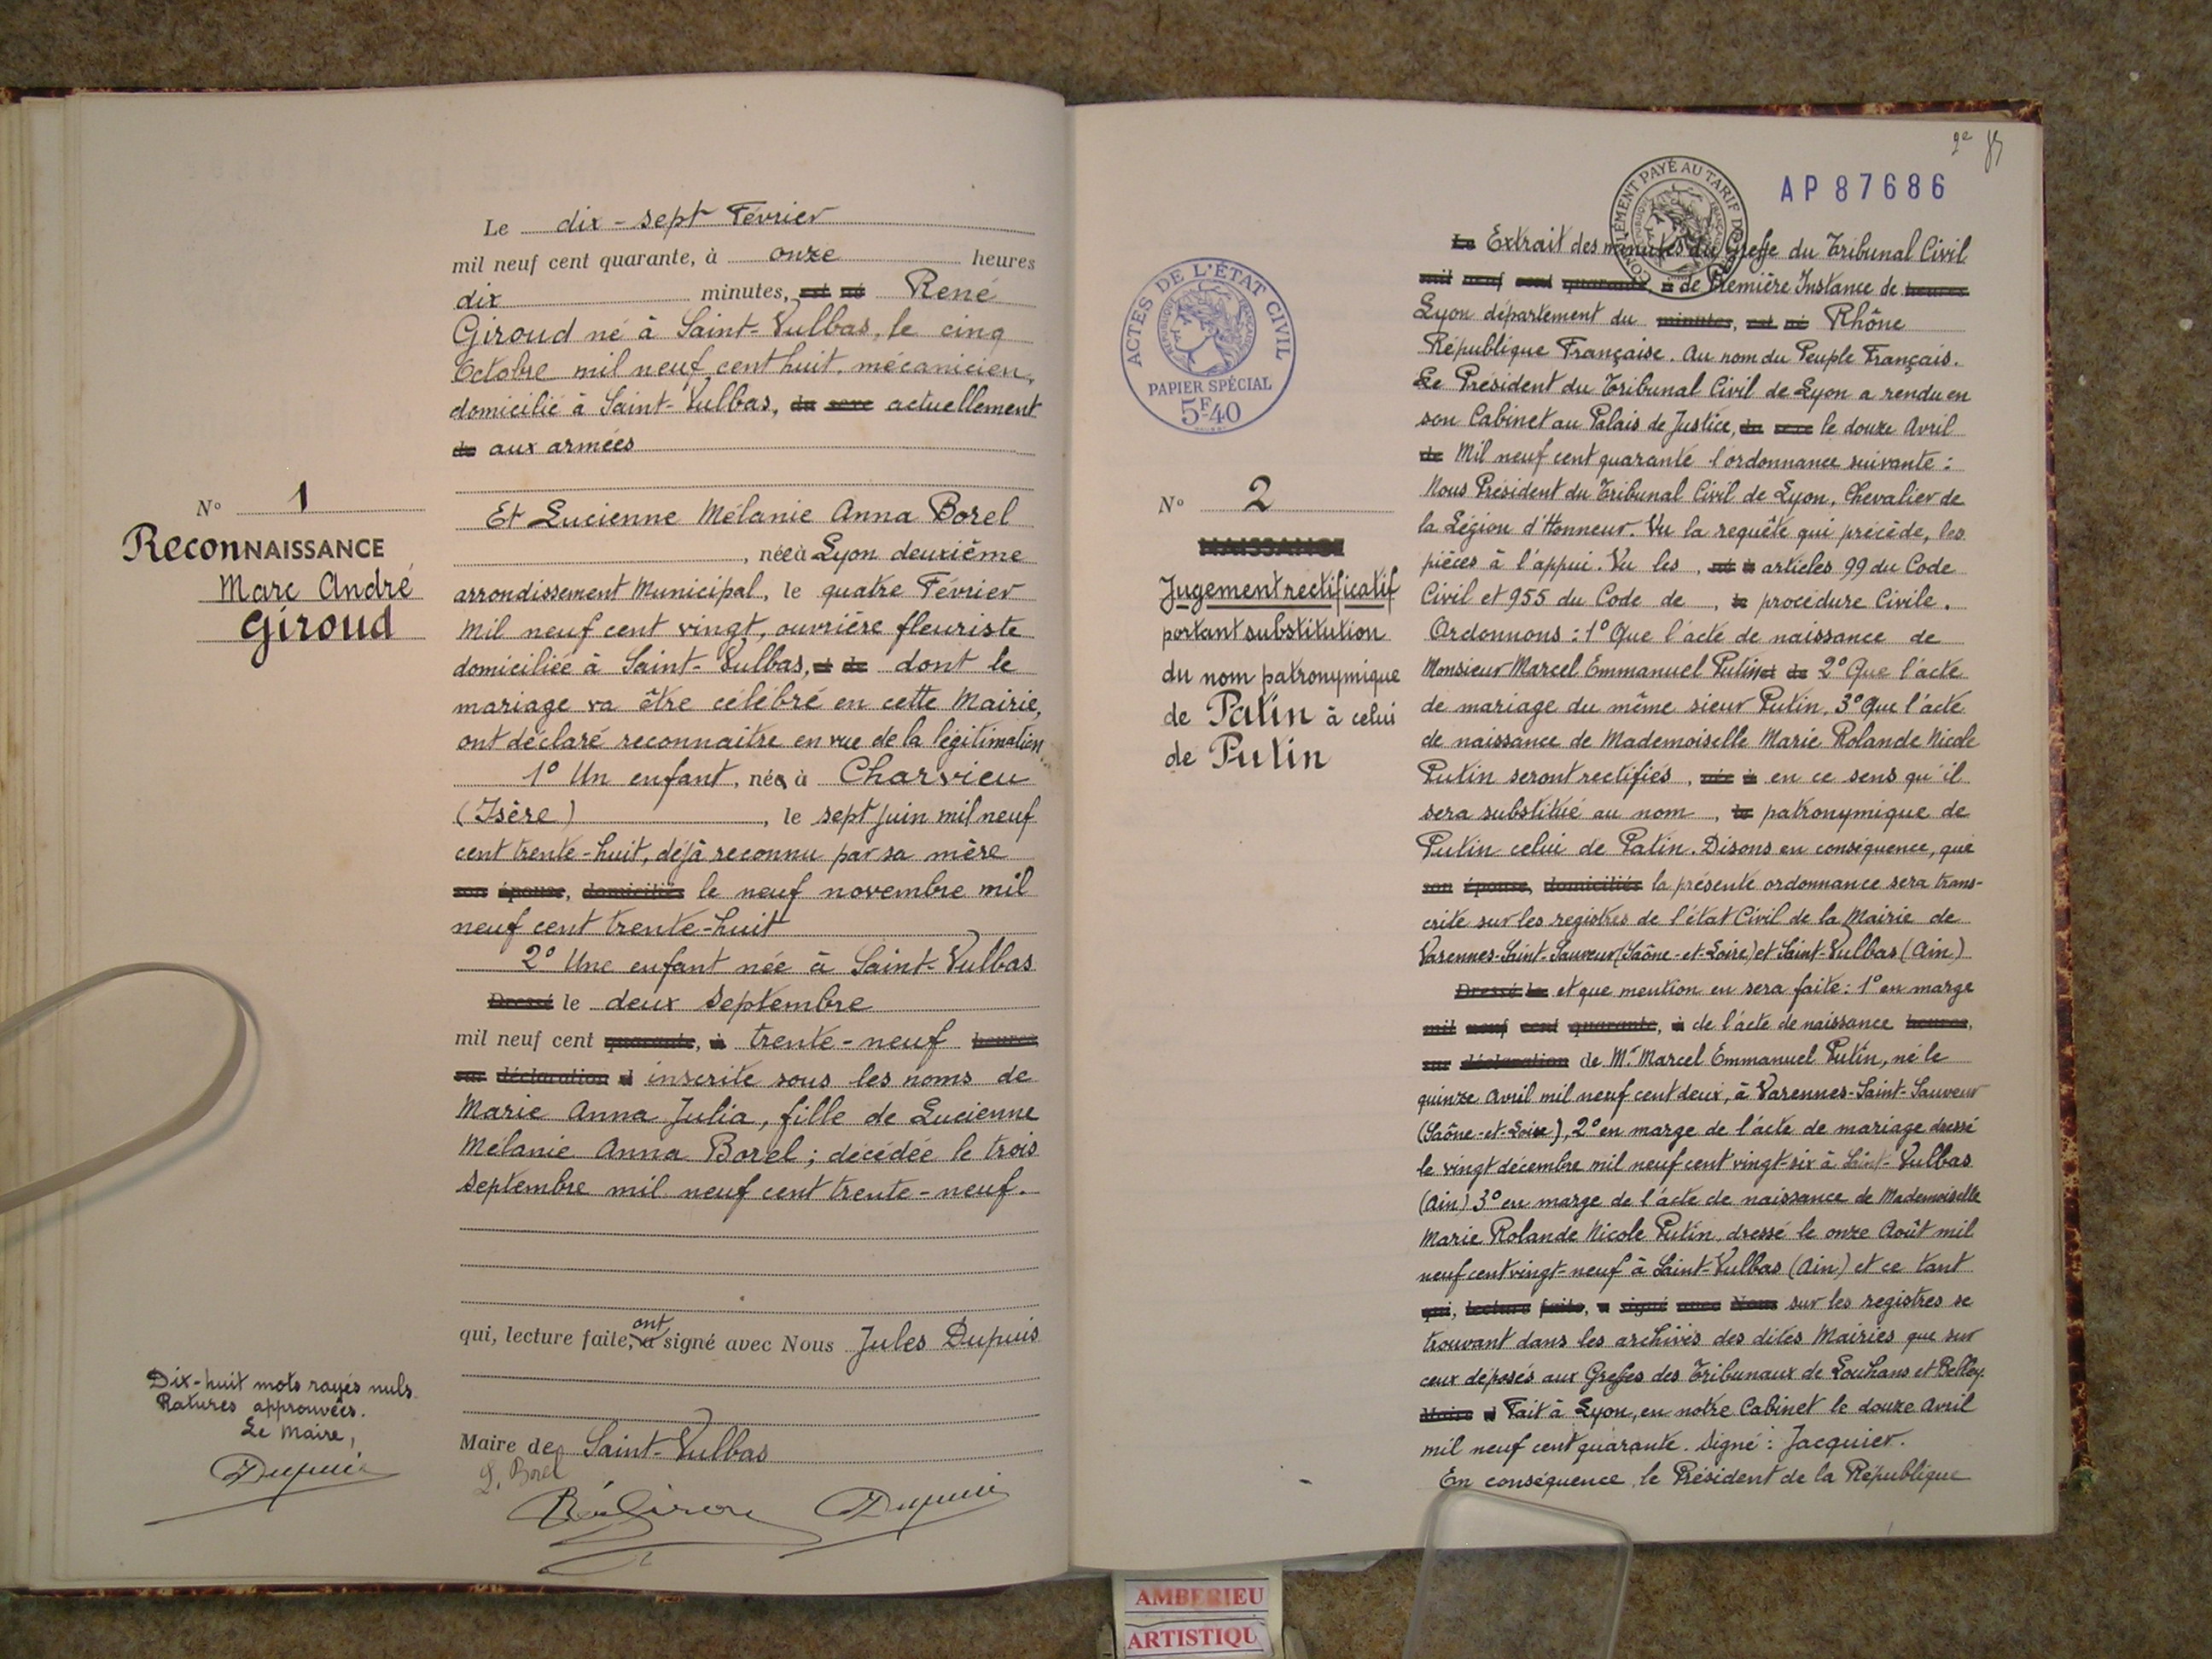 N° 1
ReconNAISSANCE
Marc André
Giroud
Le dix-sept Février
mil neuf cent quarante, à onze heures
dix minutes, est né René
Giroud né à Saint-Vulbas, le cinq
Octobre mil neuf cent huit, mécanicien,
domicilié à Saint-Vulbas, du sexe actuellement
de aux armées
Et Lucienne Mélanie Anna Borel
, née à Lyon deuxième
arrondissement Municipal, le quatre Février
mil neuf cent vingt, ouvrière fleuriste
domiciliée à Saint-Vulbas, et de dont le
mariage va être célébré en cette Mairie,
ont déclaré reconnaitre en vue de la légitimation
1° Un enfant, né à Charvieu
(Isère), le sept juin mil neuf
cent trente-huit, déjà reconnu par sa mère
son épouse, domiciliés le neuf novembre mil
neuf cent trente-huit
2° Une enfant née à Saint-Vulbas
Dressé le deux Septembre
mil neuf cent quarante, à trente-neuf heures
sur déclaration d inscrite sous les noms de
Marie Anna Julia, fille de Lucienne
Mélanie Anna Borel ; décédée le trois
Septembre mil neuf cent trente-neuf.
qui, lecture faite, a ont signé avec Nous Jules Dupuis
Maire de Saint-Vulbas
L. Borel
Dupuis
Dix-huit mots rayés nuls.
Ratures approuvées.
Le Maire,
Dupuis
2e
AP 87686
COMPLÉMENT PAYÉ AU TARIF DE
RÉPUBLIQUE FRANÇAISE
ACTES DE L'ÉTAT CIVIL
RÉPUBLIQUE FRANÇAISE
PAPIER SPÉCIAL
5F40
N° 2
NAISSANCE
Jugement rectificatif
portant substitution
du nom patronymique
de Patin à celui
de Putin
Le Extrait des minutes du Greffe du Tribunal Civil
mil neuf cent quarante, à de Première Instance de heures
Lyon département du minutes, est né Rhône
République Française. Au nom du Peuple Français.
Le Président du Tribunal Civil de Lyon a rendu en
son Cabinet au Palais de Justice, du sexe le douze Avril
de Mil neuf cent quarante l'ordonnance suivante :
Nous Président du Tribunal Civil de Lyon, Chevalier de
la Légion d'Honneur. Vu la requête qui précède, les
pièces à l'appui. Vu les , né à articles 99 du Code
Civil et 955 du Code de , le procédure Civile.
Ordonnons : 1° Que l'acte de naissance de
Monsieur Marcel Emmanuel Putin et de 2° Que l'acte
de mariage du même sieur Putin, 3° Que l'acte
de naissance de Mademoiselle Marie Rolande Nicole
Putin seront rectifiés , née à en ce sens qu'il
sera substitué au nom , le patronymique de
Putin celui de Patin. Disons en conséquence, que
son épouse, domiciliés la présente ordonnance sera trans-
crite sur les registres de l'état Civil de la Mairie de
Varennes-Saint-Sauveur (Saône-et-Loire) et Saint-Vulbas (Ain)
Dressé le et que mention en sera faite : 1° en marge
mil neuf cent quarante, à de l'acte de naissance heures,
sur déclaration de Mr Marcel Emmanuel Putin, né le
quinze Avril mil neuf cent deux, à Varennes-Saint-Sauveur
(Saône-et-Loire), 2° en marge de l'acte de mariage dressé
le vingt décembre mil neuf cent vingt-six à Saint-Vulbas
(Ain) 3° en marge de l'acte de naissance de Mademoiselle
Marie Rolande Nicole Putin, dressé le onze Août mil
neuf cent vingt-neuf à Saint-Vulbas (Ain) et ce tant
qui, lecture faite, a signé avec Nous sur les registres se
trouvant dans les archives des dites Mairies que sur
ceux déposés aux Greffes des Tribunaux de Louhans et Belley.
Maire d Fait à Lyon, en notre Cabinet le douze Avril
mil neuf cent quarante. Signé : Jacquier.
En conséquence, le Président de la République
AMBERIEU
ARTISTIQU